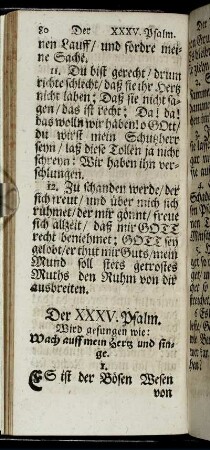 80 Der XXXV. Psalm.
nen Lauff/ und fordre mei-
ne Sache.
11. Du bist gerecht/ drum
richte schlecht/ daß sie ihr Hertz
nicht laben; Daß sie nicht sa-
gen/ das ist recht; Da! da!
das wolln wir haben! o GOtt/
du wirst mein Schutzherr
seyn/ laß diese Tollen ja nicht
schreyn: Wir haben ihn ver-
schlungen.
12. Zu schanden werde/ der
sich freut/ und über mich sich
rühmet/ der mir gönnt/ freue
sich allzeit/ daß mir GOTT
recht beniehmet; GOTT sey
gelobt/ er thut mir Guts/ mein
Mund soll stets getrostes
Muths den Ruhm von dir
ausbreiten.
Der XXXV. Psalm.
Wird gesungen wie:
Wach auff mein Hertz und sin-
ge.
1.
ES ist der Bösen Wesen
von